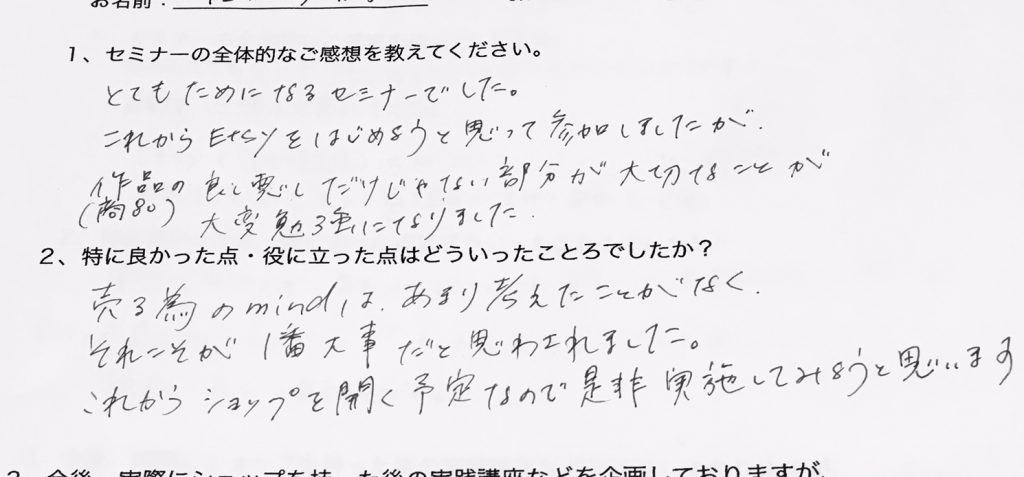 お名前：
1、セミナーの全体的なご感想を教えてください。
とてもためになるセミナーでした。
これからEtsyをはじめようと思って参加しましたが、
作品の良し悪しだけじゃない部分が大切なことが
(商品)
大変勉強になりました.
2、特に良かった点・役に立った点はどういったことろでしたか？
売る為のmindは、あまり考えたことがなく、
それこそが1番大事だと思わされました。
これからショップを開く予定なので是非実施してみようと思います
3、今後、実際にショップを持った後の実践講座などを企画しておりますが、